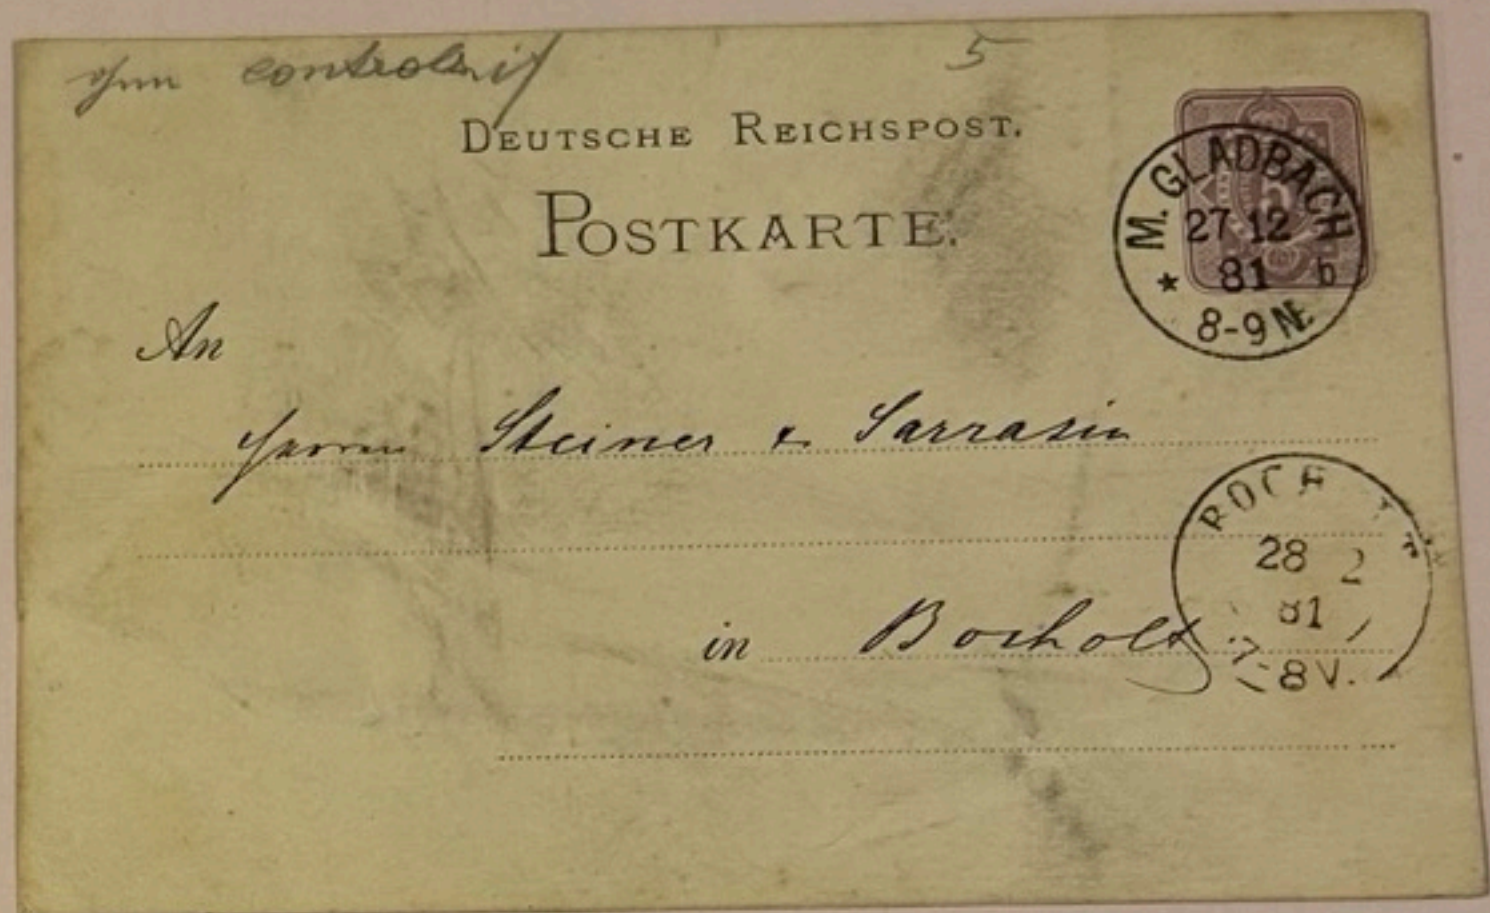 5
DEUTSCHE REICHSPOST.
POSTKARTE.
M. GLADBACH
27 12
81 b
* 8-9 N.
An
Herren Steiner & Sarrazin
BOCH T
28 2
81
7-8 V.
in Bocholt